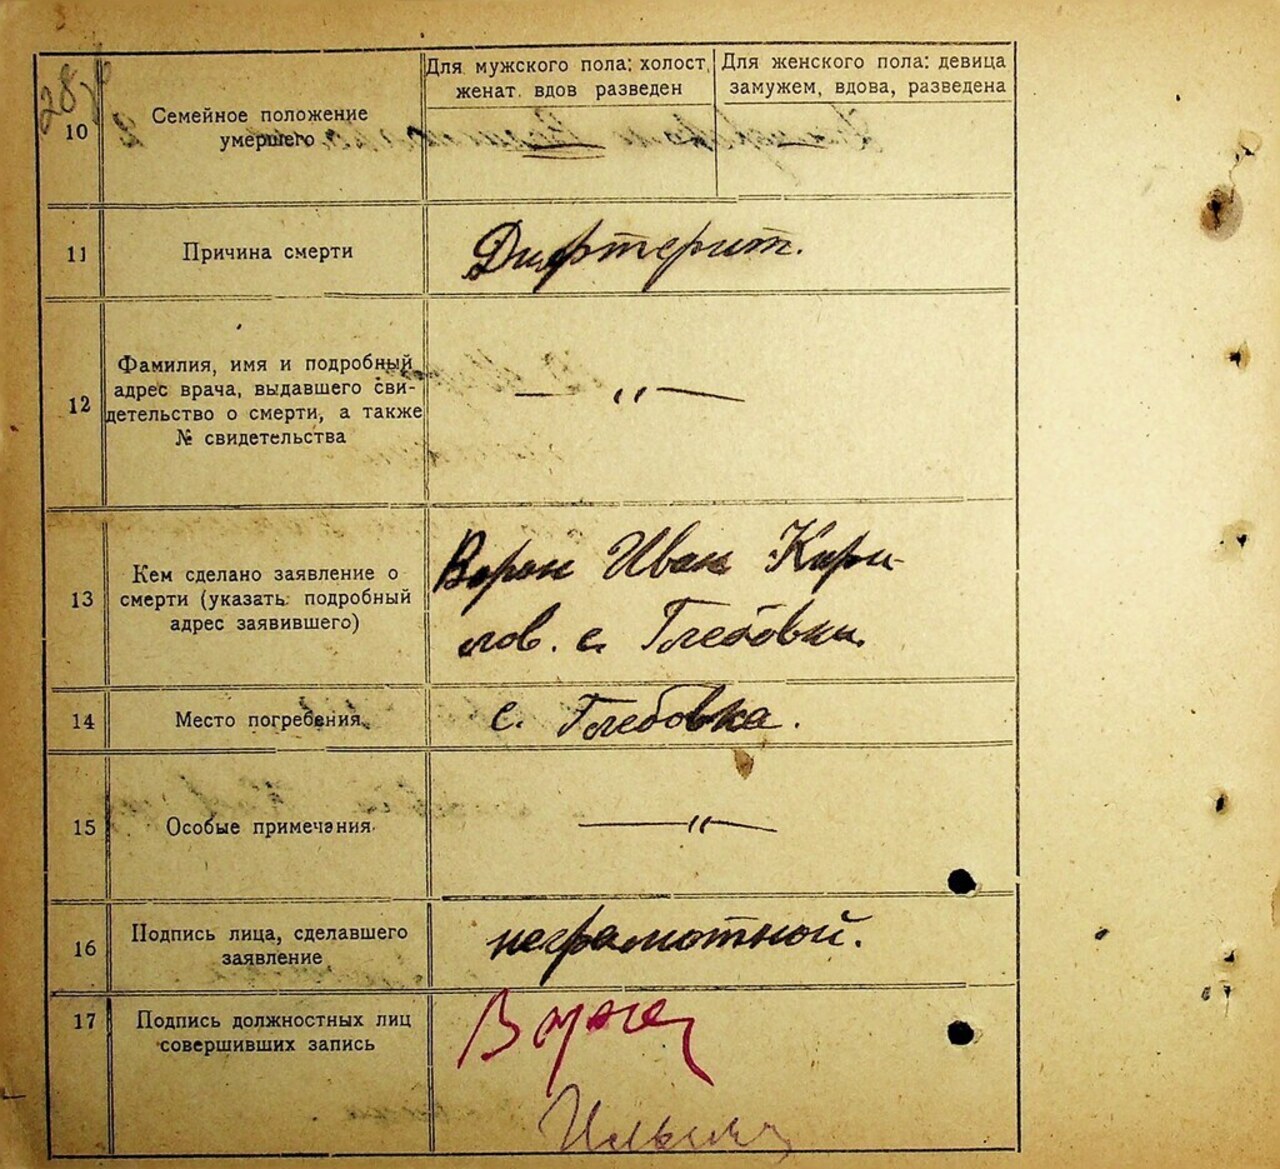 Для мужского пола: холост, женат, вдов разведен
Для женского пола: девица замужем, вдова, разведена
10
Семейное положение
умершего
11
Причина смерти
Дифтерит.
12
Фамилия, имя и подробный
адрес врача, выдавшего сви-
детельство о смерти, а также
№ свидетельства
— " —
13
Кем сделано заявление о
смерти (указать подробный
адрес заявившего)
Ворон Иван Кири-
лов. с. Глебовки
14
Место погребения
с. Глебовка.
15
Особые примечания
— " —
16
Подпись лица, сделавшего
заявление
неграмотной.
17
Подпись должностных лиц
совершивших запись